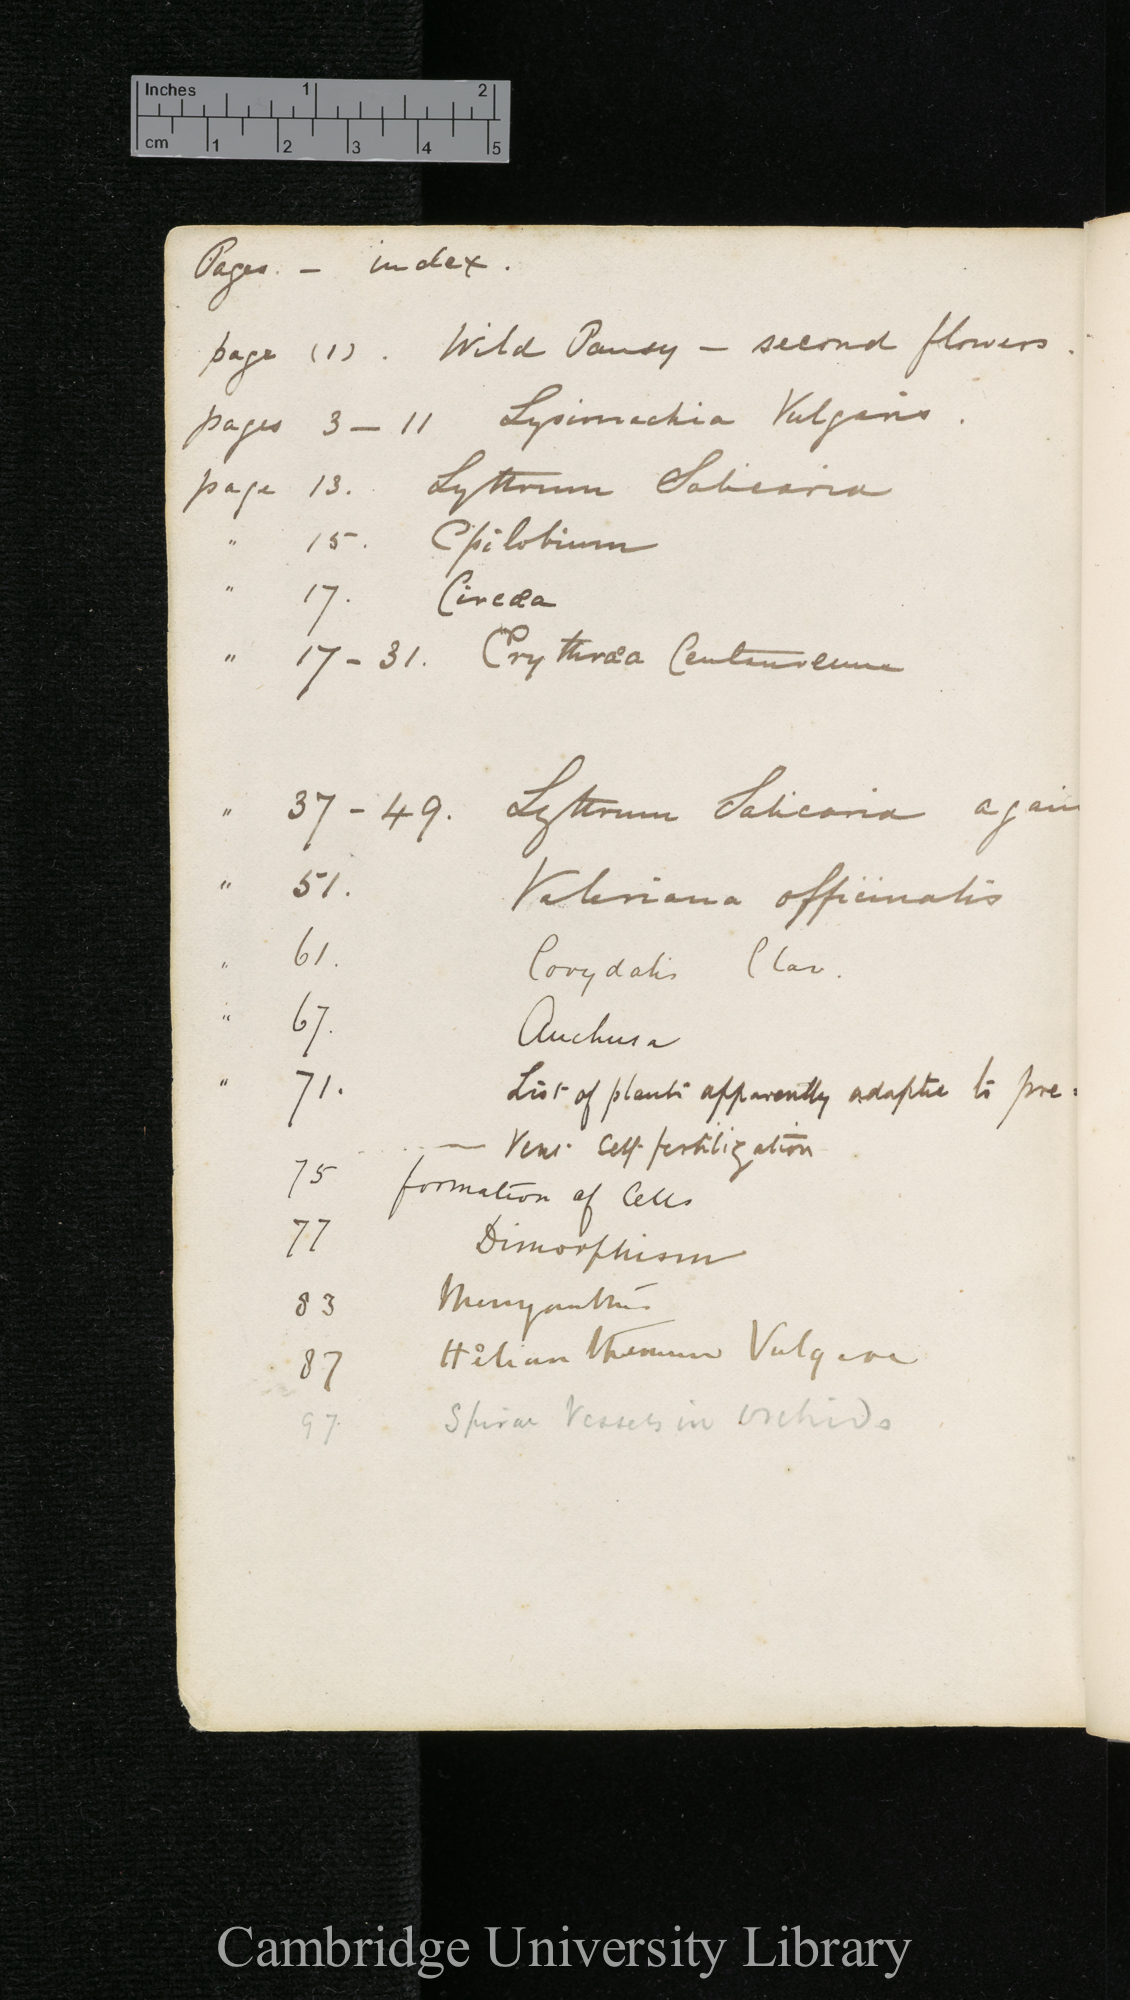 Inches 1 2
cm 1 2 3 4 5
Pages. – index.
page (1). Wild Pansy – second flowers.
pages 3 – 11 Lysimachia Vulgaris.
page 13. Lythrum Salicaria
" 15. Epilobium
" 17. Circæa
" 17 – 31. Erythræa Centaureum
" 37 – 49. Lythrum Salicaria again
" 51. Valeriana officinalis
" 61. Corydalis Clav.
" 67. Anchusa
" 71. List of plants apparently adapted to pre=
— vent self-fertilization
75 formation of Cells
77 Dimorphism
83 Menyanthes
87 Helianthemum Vulgare
97. Spiral Vessels in Orchids
Cambridge University Library